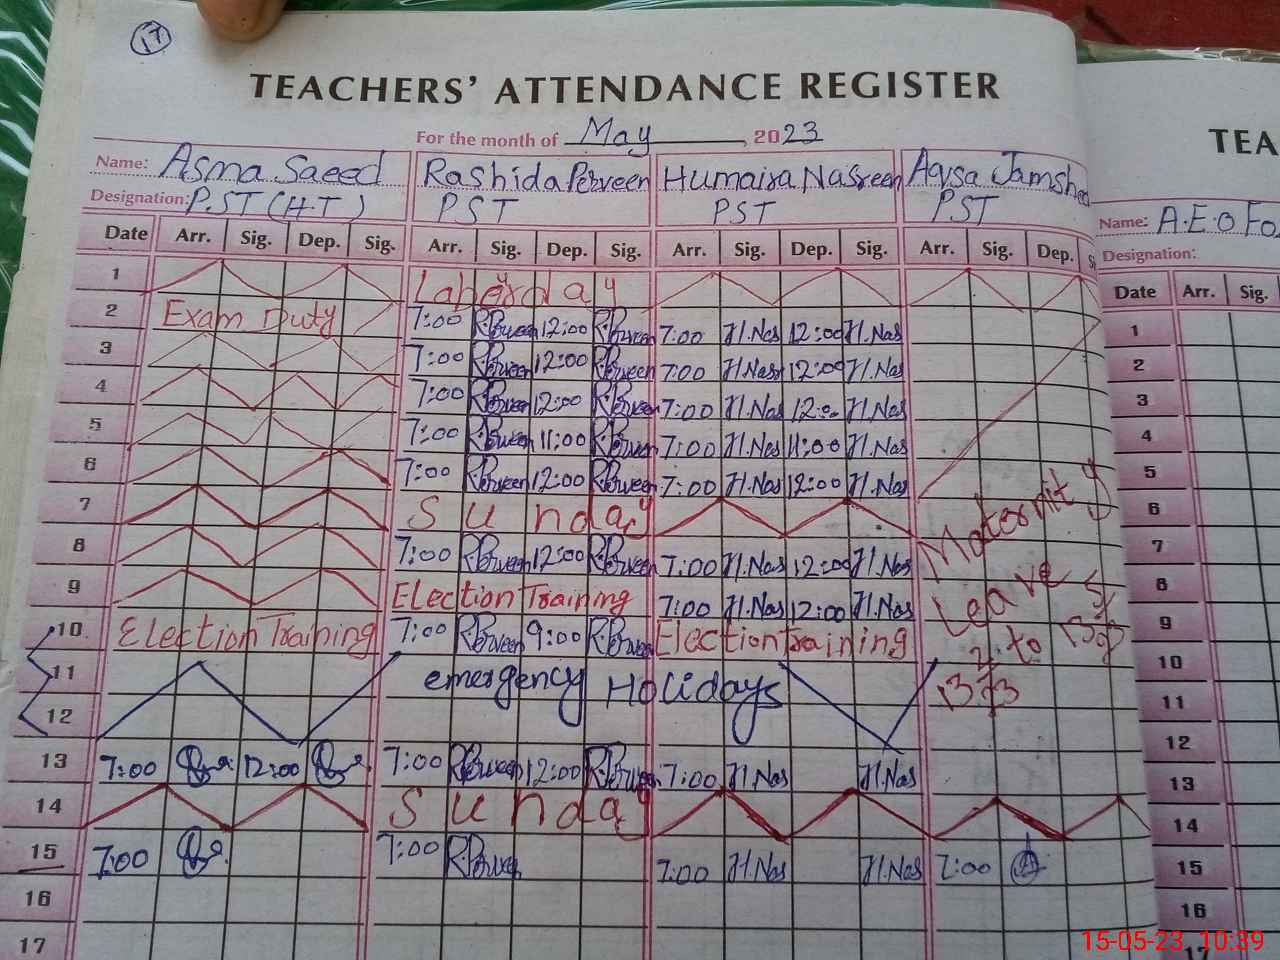 17
TEACHERS' ATTENDANCE REGISTER
For the month of May, 2023
Name: Asma Saeed Rashida Perveen Humaira Nasreen Aqsa Jamshed
Designation: P.ST (H.T) PST PST PST
Date Arr. Sig. Dep. Sig. Arr. Sig. Dep. Sig. Arr. Sig. Dep. Sig. Arr. Sig. Dep.
1 Labor day
2 Exam Duty 7:00 R.Perveen 12:00 R.Perveen 7:00 H.Nas 12:00 H.Nas
3 7:00 R.Perveen 12:00 R.Perveen 7:00 H.Nas 12:00 H.Nas
4 7:00 R.Perveen 12:00 R.Perveen 7:00 H.Nas 12:0 H.Nas
5 7:00 R.Perveen 11:00 R.Perveen 7:00 H.Nas 11:00 H.Nas
6 7:00 R.Perveen 12:00 R.Perveen 7:00 H.Nas 12:00 H.Nas
7 Sunday
8 7:00 R.Perveen 12:00 R.Perveen 7:00 H.Nas 12:00 H.Nas
9 Election Training 7:00 H.Nas 12:00 H.Nas
10 Election Training 7:00 R.Perveen 9:00 R.Perveen Election Training
11 emergency Holidays
12
13 7:00 12:00 7:00 R.Perveen 12:00 R.Perveen 7:00 H.Nas H.Nas
14 Sunday
15 7:00 7:00 R.Perveen 7:00 H.Nas H.Nas 7:00
16
17
Maternity
Leave
to
TEA
Name: A.E.O Fo
Designation:
Date Arr. Sig.
1
2
3
4
5
6
7
8
9
10
11
12
13
14
15
16
17
15-05-23 10:39